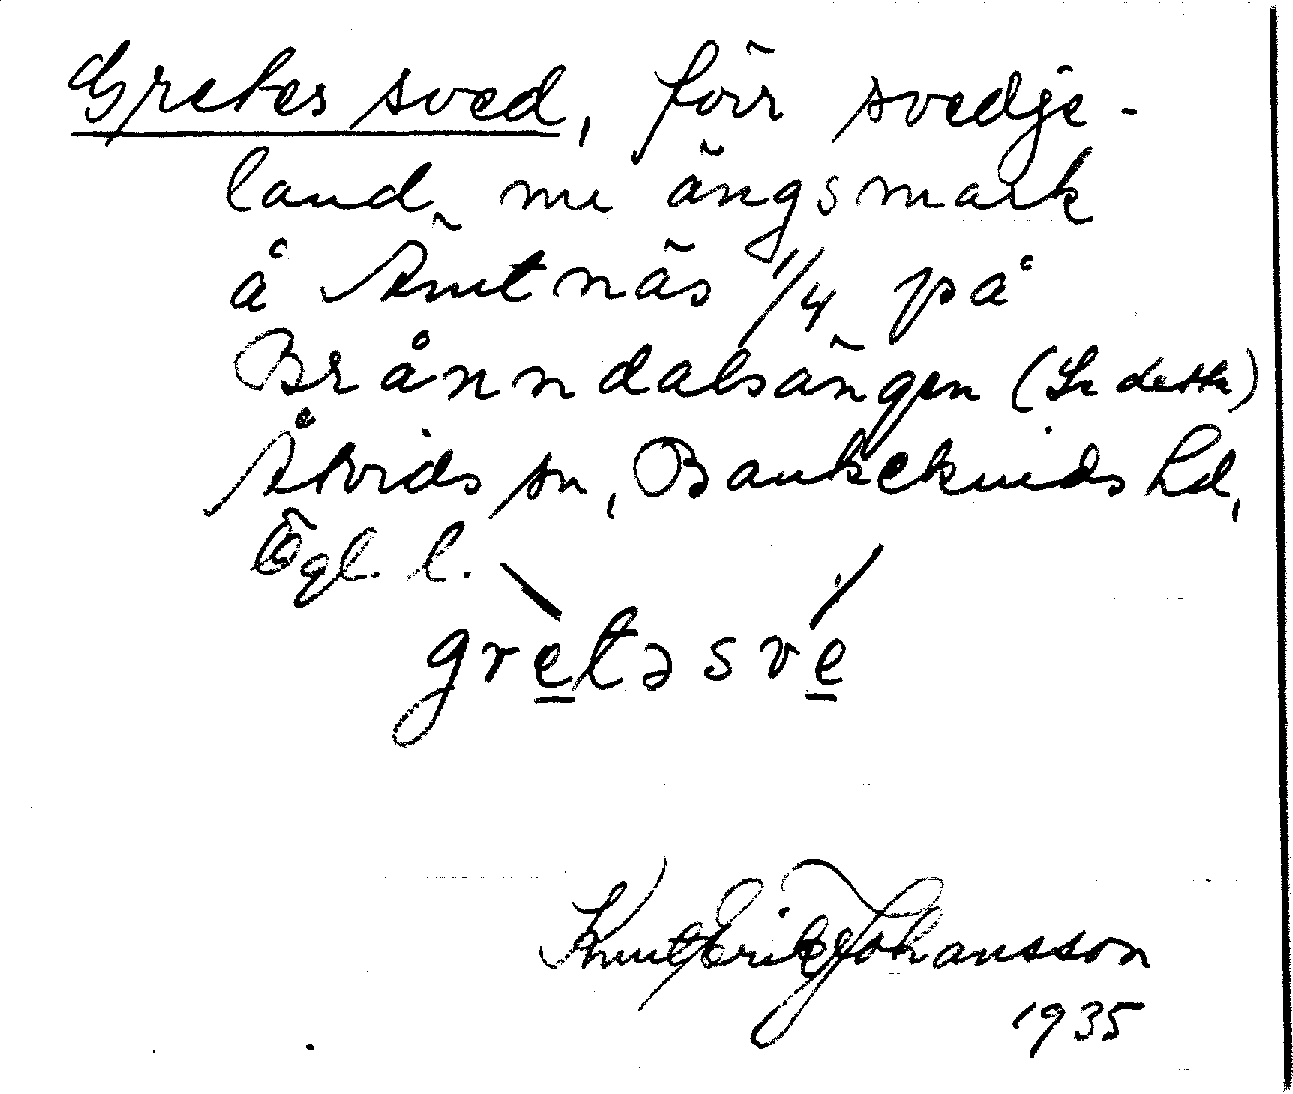 Gretes sved, förr svedje-
land, nu ängsmark
å Ämtnäs 1/4 på
Brånndalsängen (Se detta)
Åtvids sn, Bankekinds hd,
Ögl. l.
gretəsve
Knut Erik Johansson
1935